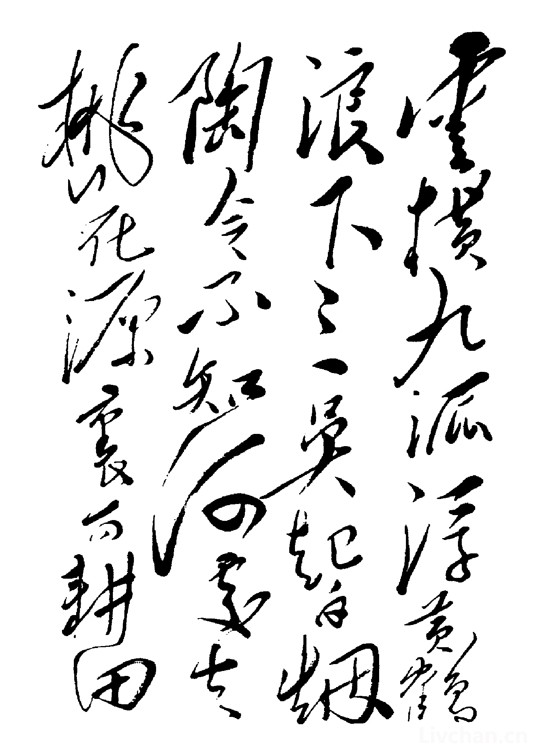 雲橫九派浮黃鶴
浪下三吳起白烟
陶令不知何處去
桃花源裏可耕田
Livchan.cn